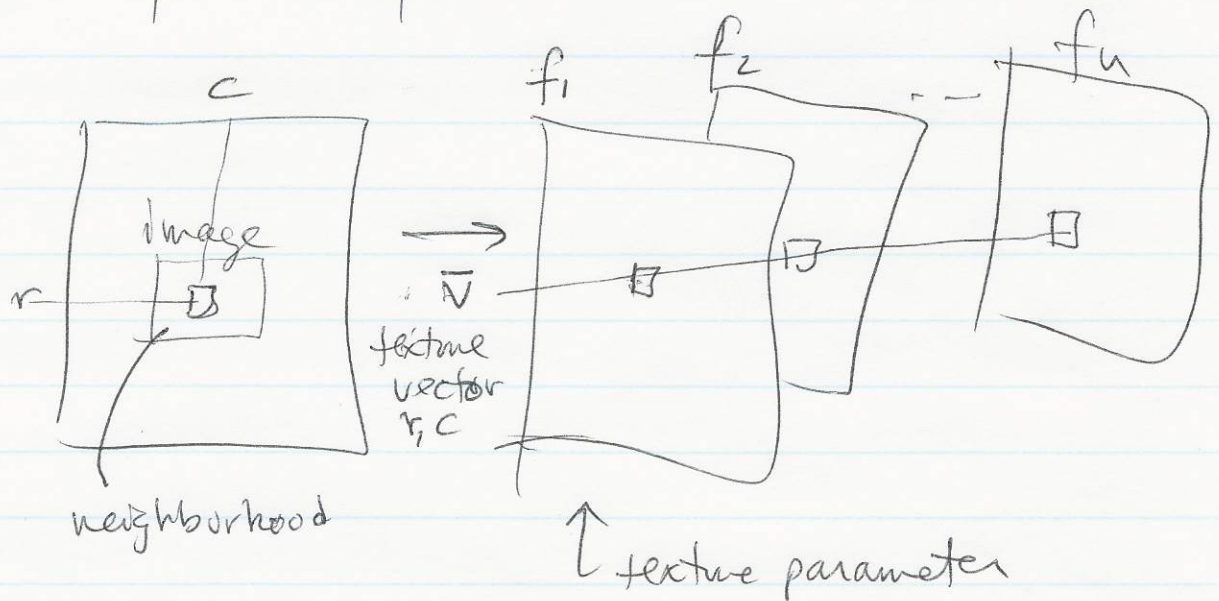 c
f₁
f₂
- -
fₙ
image
r
→
V̄
texture
vector
r, c
neighborhood
↑ texture parameter